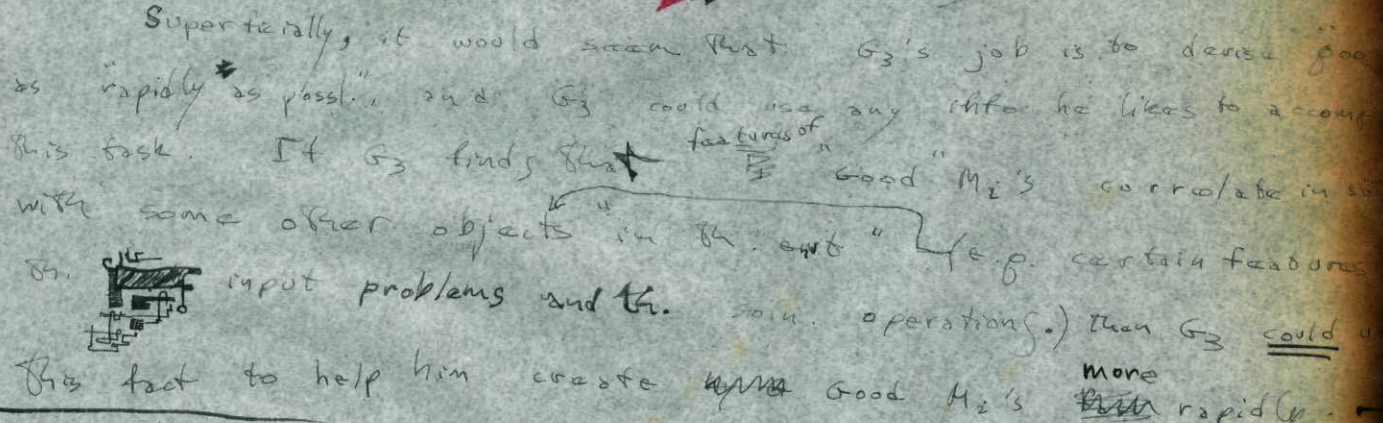 Superficially, it would seem that G3's job is to devise "goo
as "rapidly as possl.", and G3 could use any info he likes to accomp
this task. If G3 finds that features of "Good" Mi's correlate in so
with some other objects "in th. envt" (e.g. certain features
th. input problems and th. soln. operations.) then G3 could u
This fact to help him create Good Mi's more rapidly.